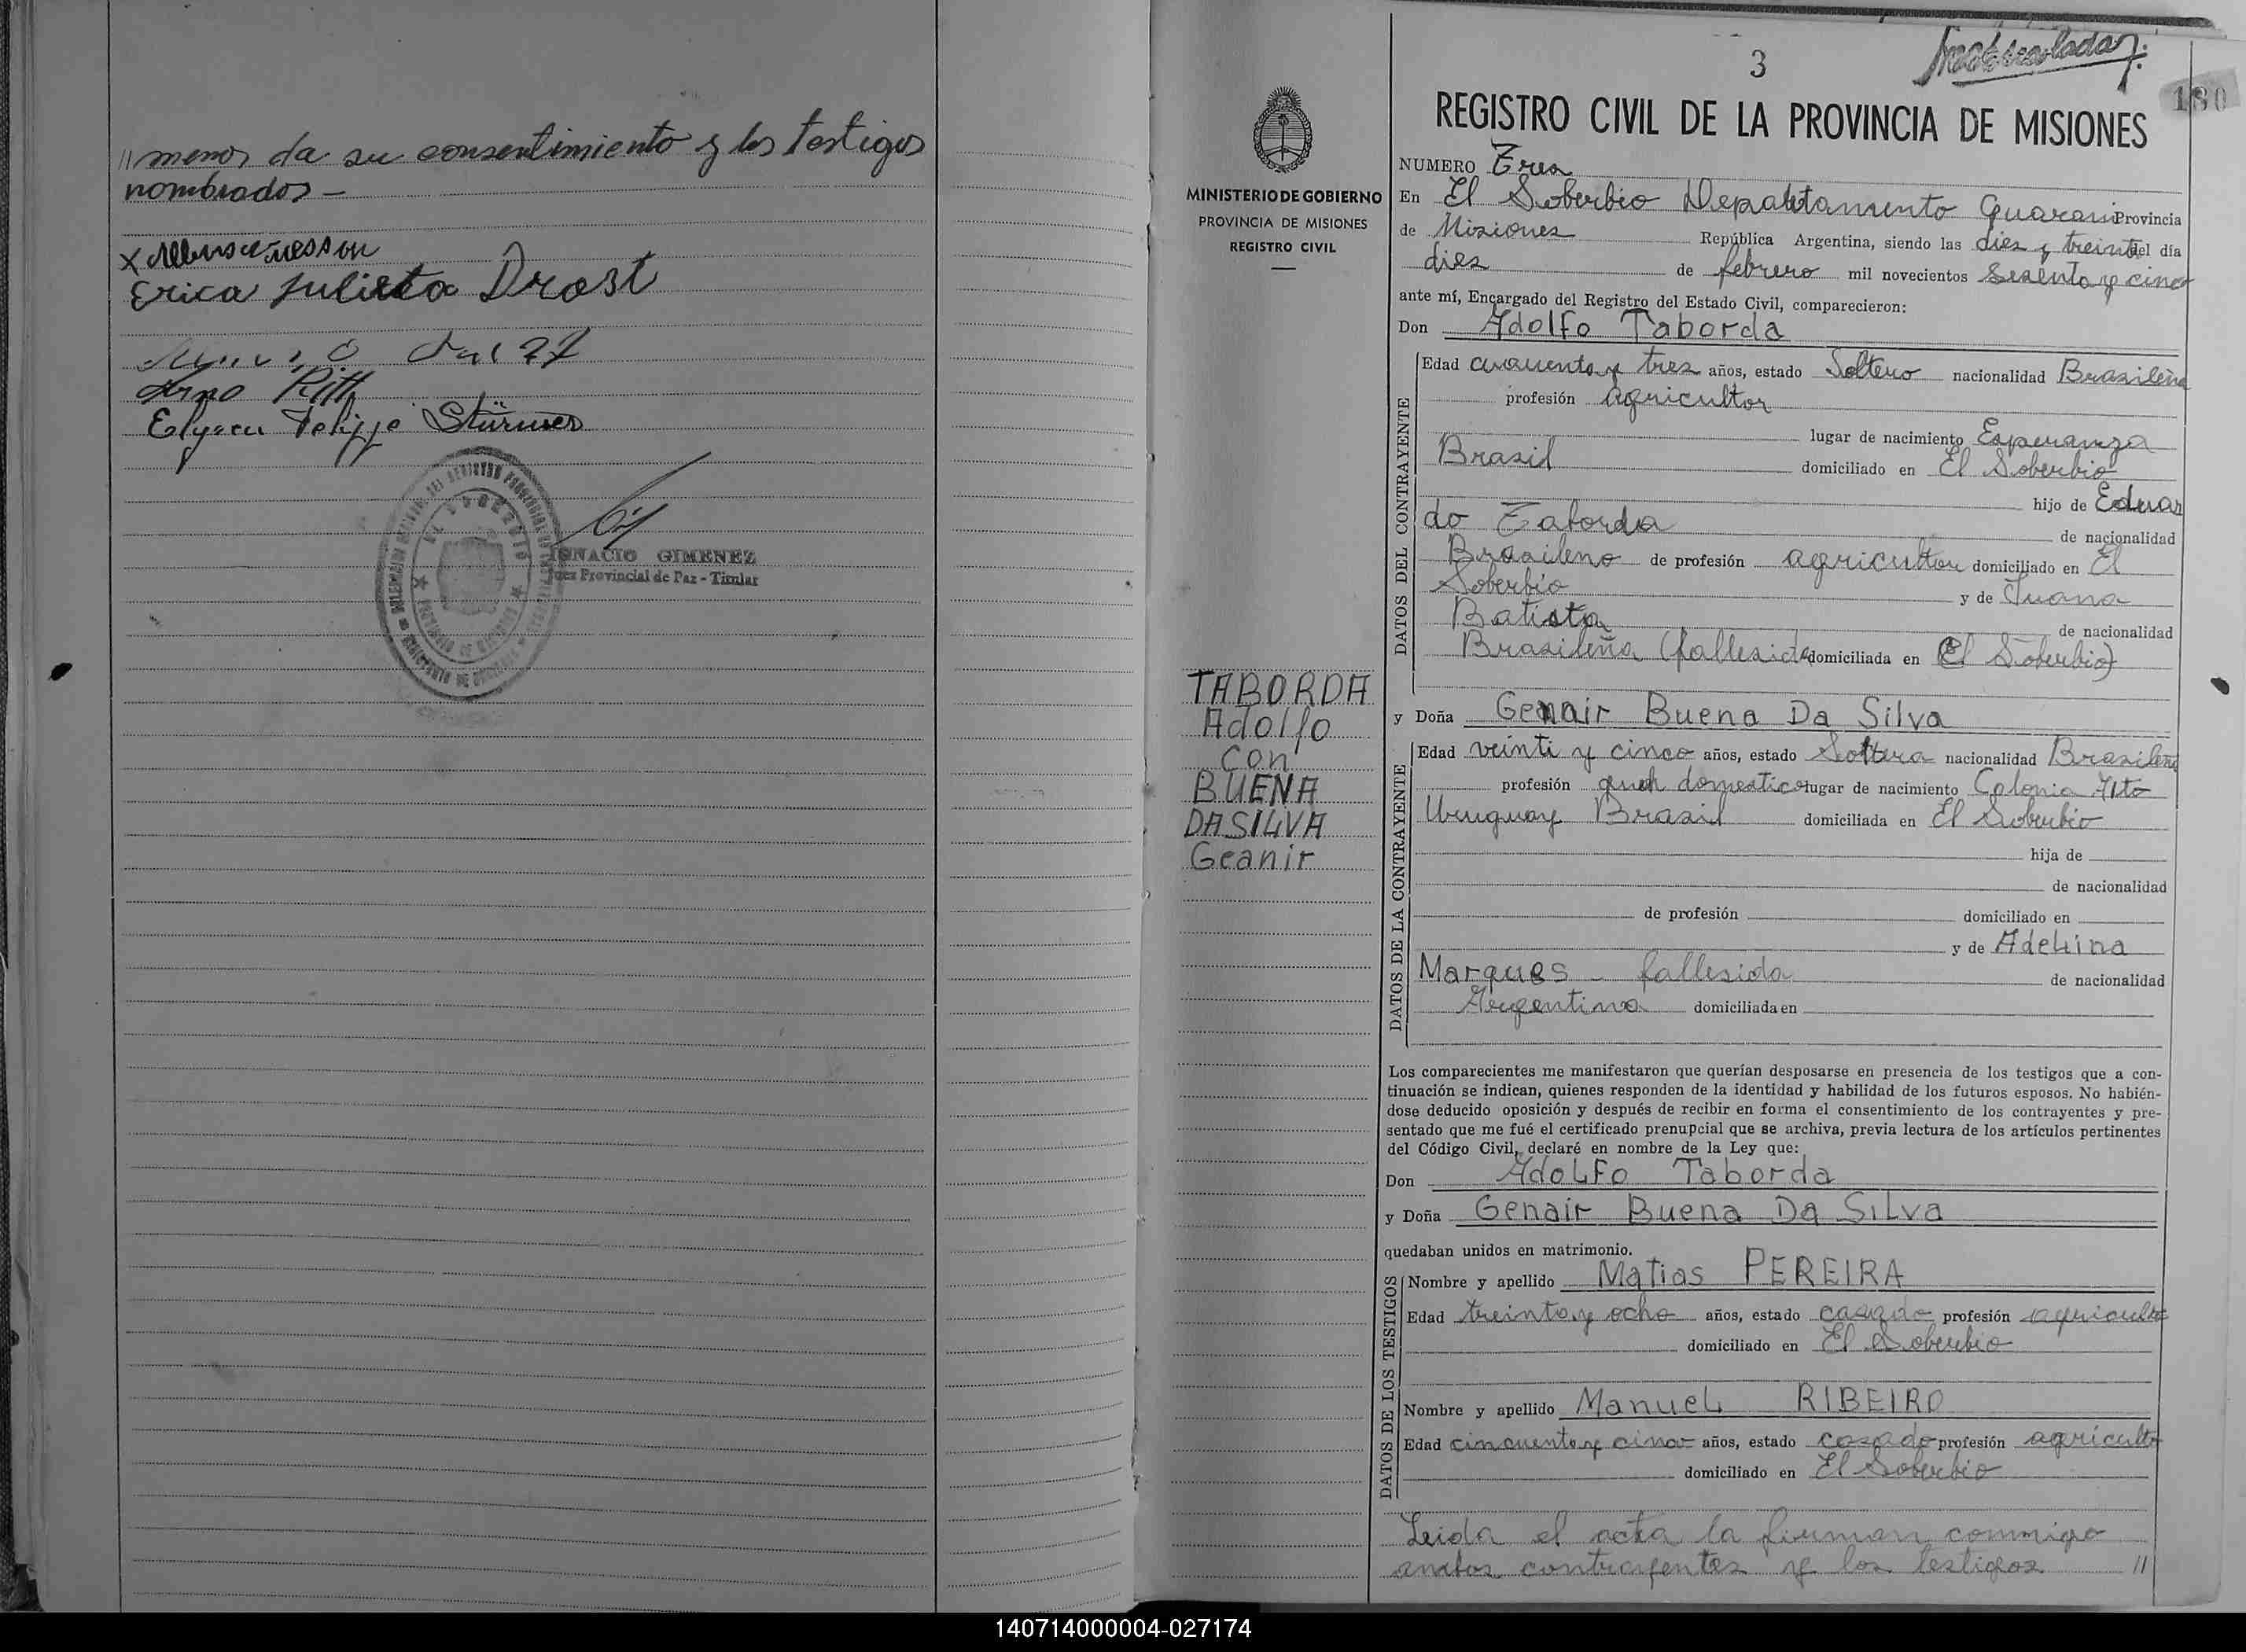 // menor da su consentimiento y los testigos
nombrados —
Erica Julieta Drost
Arno Ritt
Felippe Stürmer
IGNACIO GIMENEZ
Juez Provincial de Paz - Titular
MINISTERIO DE GOBIERNO
PROVINCIA DE MISIONES
REGISTRO CIVIL
TABORDA
Adolfo
con
BUENA
DA SILVA
Geanir
3
180
REGISTRO CIVIL DE LA PROVINCIA DE MISIONES
NUMERO Tres
En El Soberbio Departamento Guarani Provincia
de Misiones República Argentina, siendo las diez y treinta del día
diez de febrero mil novecientos sesenta y cinco
ante mí, Encargado del Registro del Estado Civil, comparecieron:
Don Adolfo Taborda
DATOS DEL CONTRAYENTE
Edad cuarenta y tres años, estado Soltero nacionalidad Brasileña
profesión agricultor
lugar de nacimiento Esperanza
Brasil domiciliado en El Soberbio
hijo de Eduar
do Taborda de nacionalidad
Brasileno de profesión agricultor domiciliado en El
Soberbio y de Juana
Batista de nacionalidad
Brasileña (fallesida domiciliada en El Soberbio)
y Doña Genair Buena Da Silva
DATOS DE LA CONTRAYENTE
Edad veinti y cinco años, estado Soltera nacionalidad Brasileña
profesión queh domestico lugar de nacimiento Colonia Alto
Uruguay Brasil domiciliada en El Soberbio
hija de
de nacionalidad
de profesión domiciliado en
y de Adelina
Marques - fallesida de nacionalidad
Argentina domiciliada en
Los comparecientes me manifestaron que querían desposarse en presencia de los testigos que a con-
tinuación se indican, quienes responden de la identidad y habilidad de los futuros esposos. No habién-
dose deducido oposición y después de recibir en forma el consentimiento de los contrayentes y pre-
sentado que me fué el certificado prenupcial que se archiva, previa lectura de los artículos pertinentes
del Código Civil, declaré en nombre de la Ley que:
Don Adolfo Taborda
y Doña Genair Buena Da Silva
quedaban unidos en matrimonio.
DATOS DE LOS TESTIGOS
Nombre y apellido Matias PEREIRA
Edad treinta y ocho años, estado casado profesión agricultor
domiciliado en El Soberbio
Nombre y apellido Manuel RIBEIRO
Edad cincuenta y cinco años, estado casado profesión agricultor
domiciliado en El Soberbio
Leida el acta la firman conmigo
ambos contrayentes y los testigos //
140714000004-027174